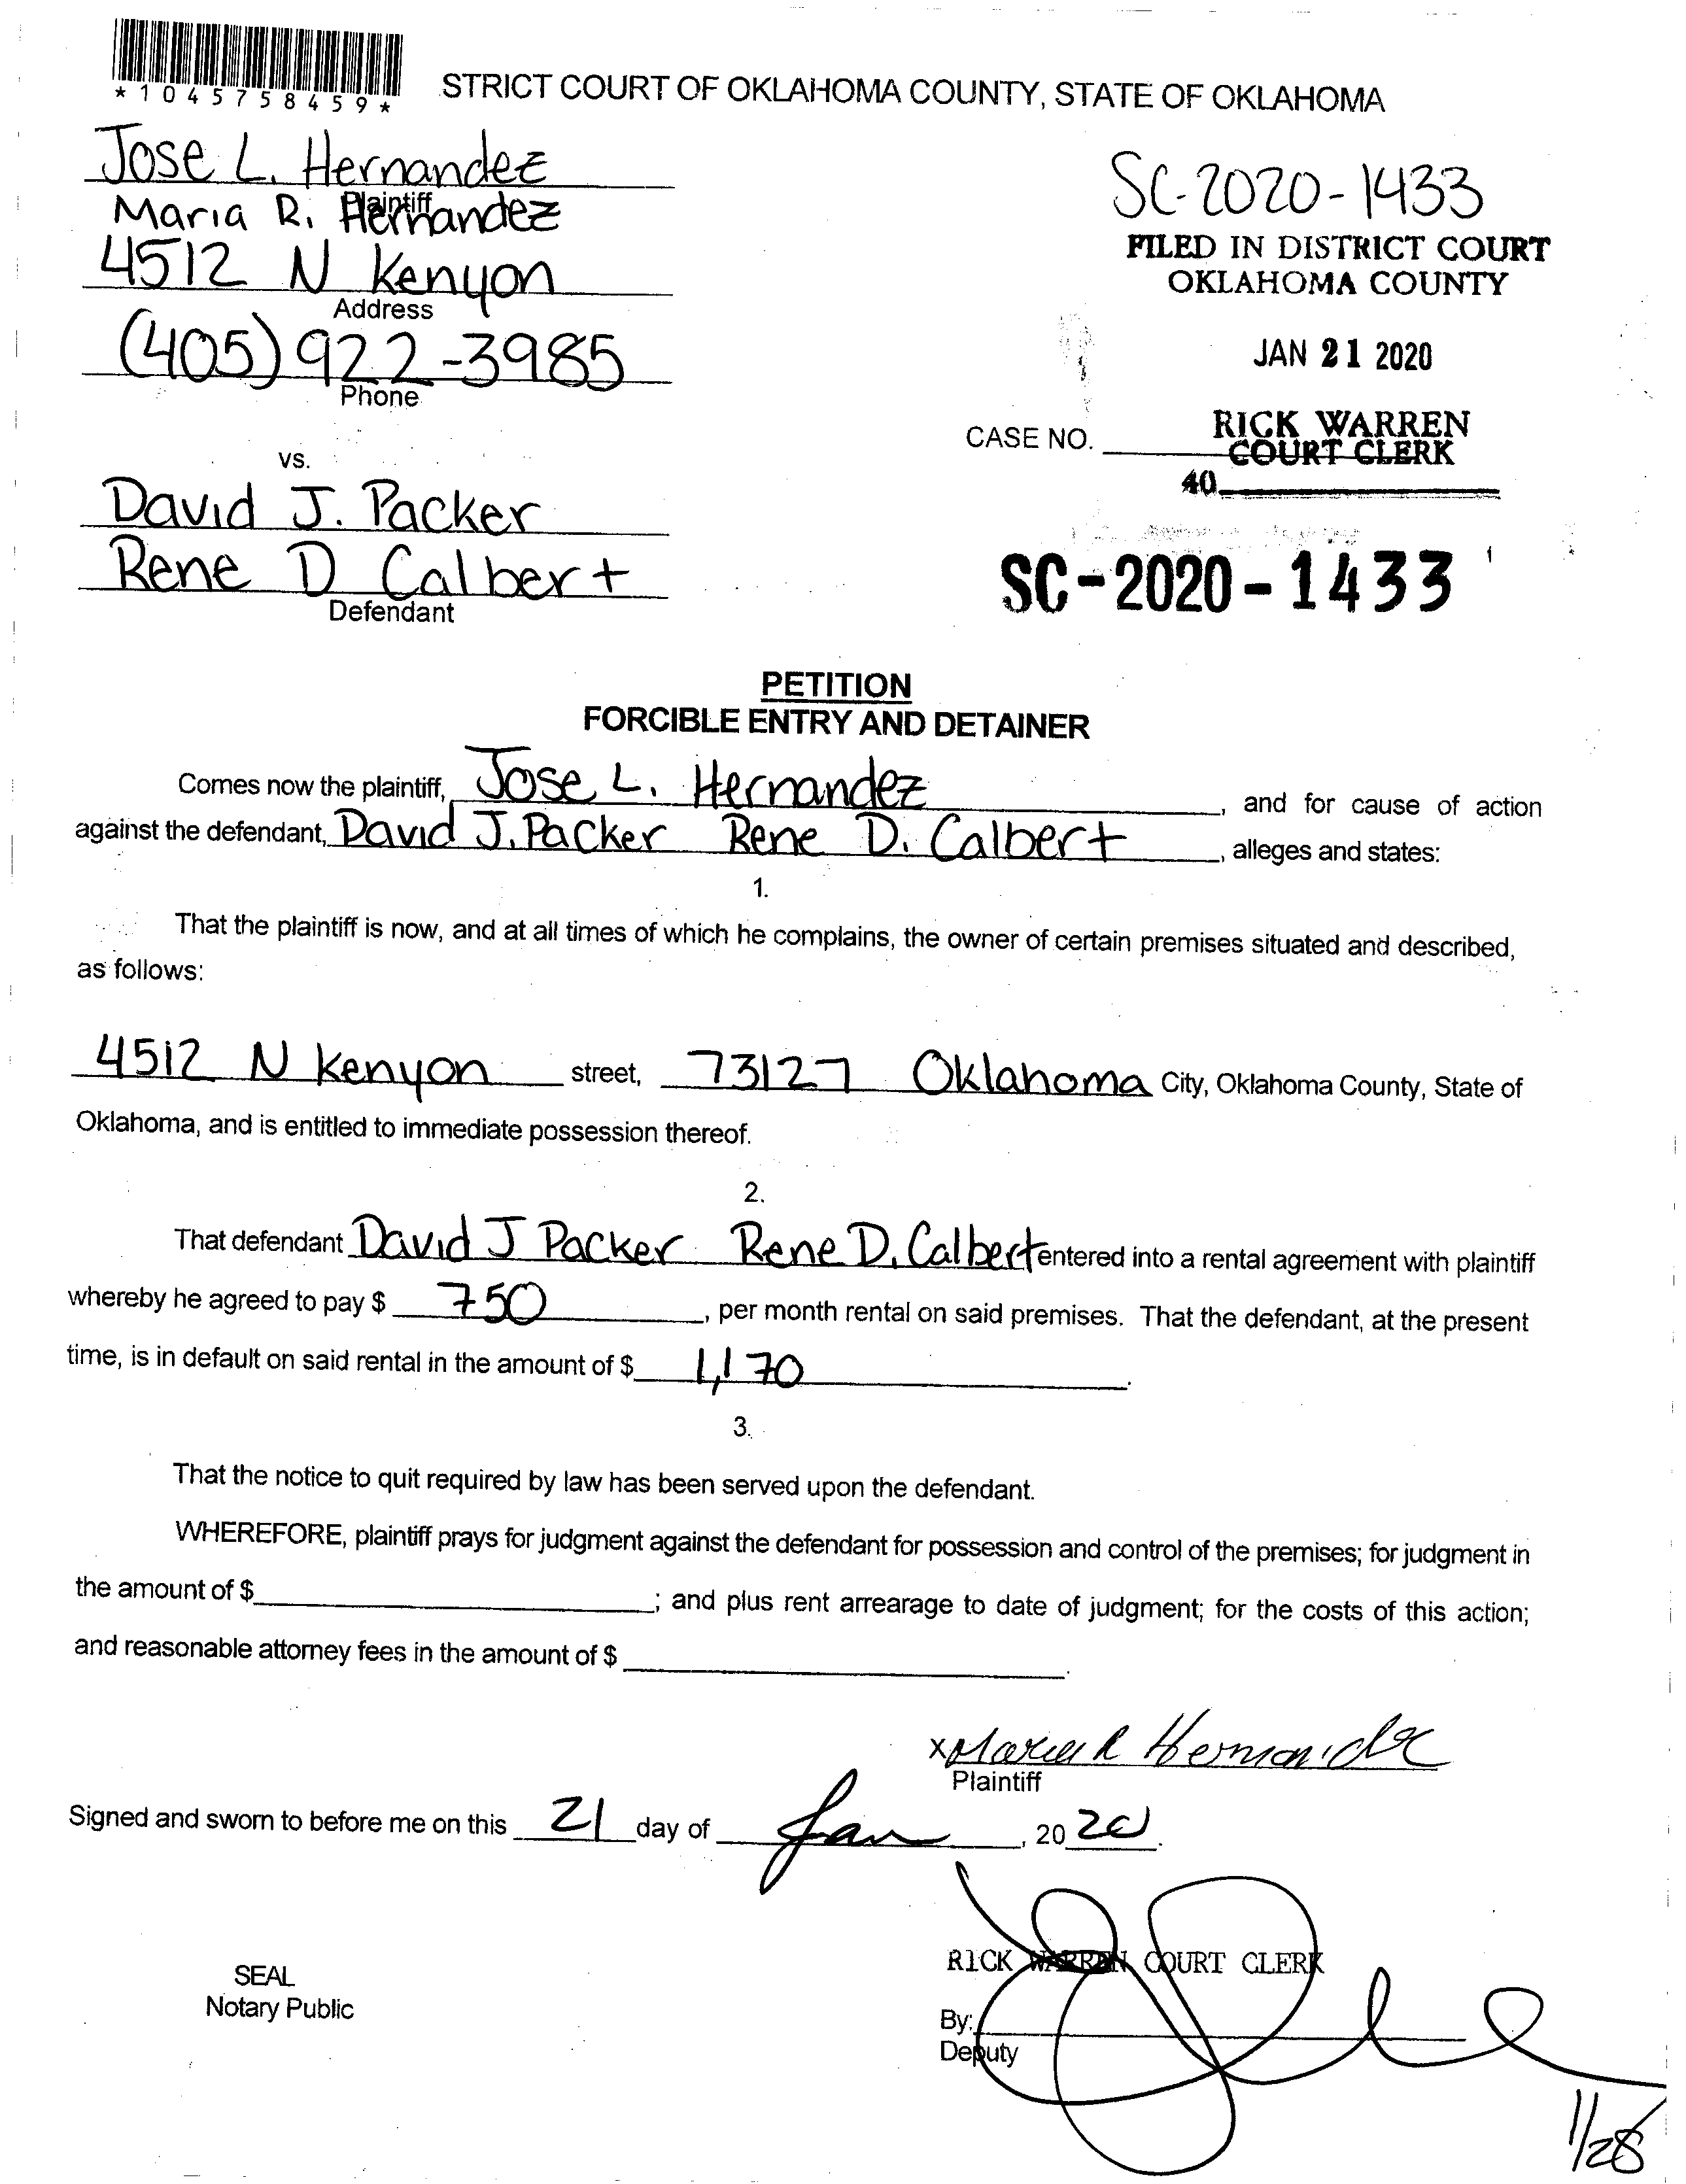 *1045758459*
STRICT COURT OF OKLAHOMA COUNTY, STATE OF OKLAHOMA
Jose L. Hernandez
Plaintiff
Maria R. Hernandez
4512 N Kenyon
Address
(405) 922-3985
Phone
vs.
David J. Packer
Rene D Calbert
Defendant
SC-2020-1433
FILED IN DISTRICT COURT
OKLAHOMA COUNTY
JAN 21 2020
RICK WARREN
COURT CLERK
CASE NO.
40
SC-2020-1433
PETITION
FORCIBLE ENTRY AND DETAINER
Comes now the plaintiff, Jose L. Hernandez, and for cause of action
against the defendant, David J. Packer Rene D. Calbert, alleges and states:
1.
That the plaintiff is now, and at all times of which he complains, the owner of certain premises situated and described,
as follows:
4512 N Kenyon street, 73127 Oklahoma City, Oklahoma County, State of
Oklahoma, and is entitled to immediate possession thereof.
2.
That defendant David J Packer Rene D. Calbert entered into a rental agreement with plaintiff
whereby he agreed to pay $ 750, per month rental on said premises. That the defendant, at the present
time, is in default on said rental in the amount of $ 1,170.
3.
That the notice to quit required by law has been served upon the defendant.
WHEREFORE, plaintiff prays for judgment against the defendant for possession and control of the premises; for judgment in
the amount of $ ; and plus rent arrearage to date of judgment; for the costs of this action;
and reasonable attorney fees in the amount of $ .
x Maria R Hernandez
Plaintiff
Signed and sworn to before me on this 21 day of Jan, 2020.
RICK WARREN COURT CLERK
SEAL
Notary Public
By:
Deputy
1/28